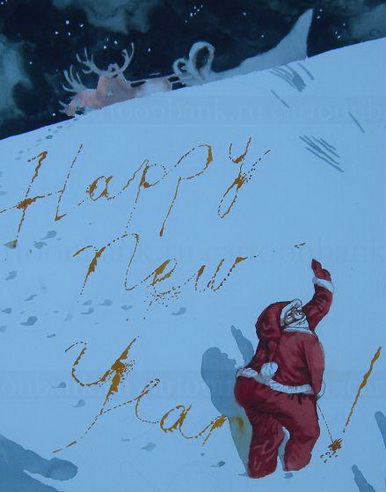 Happy
New
Year!
cartoonbank.ru